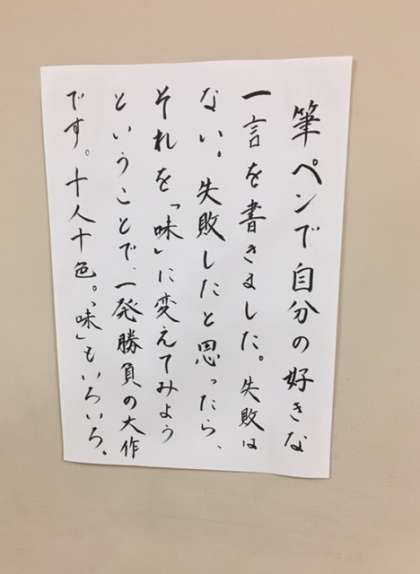 筆ペンで自分の好きな
一言を書きました。失敗は
ない。失敗したと思ったら、
それを「味」に変えてみよう
ということで、一発勝負の大作
です。十人十色。「味」もいろいろ、